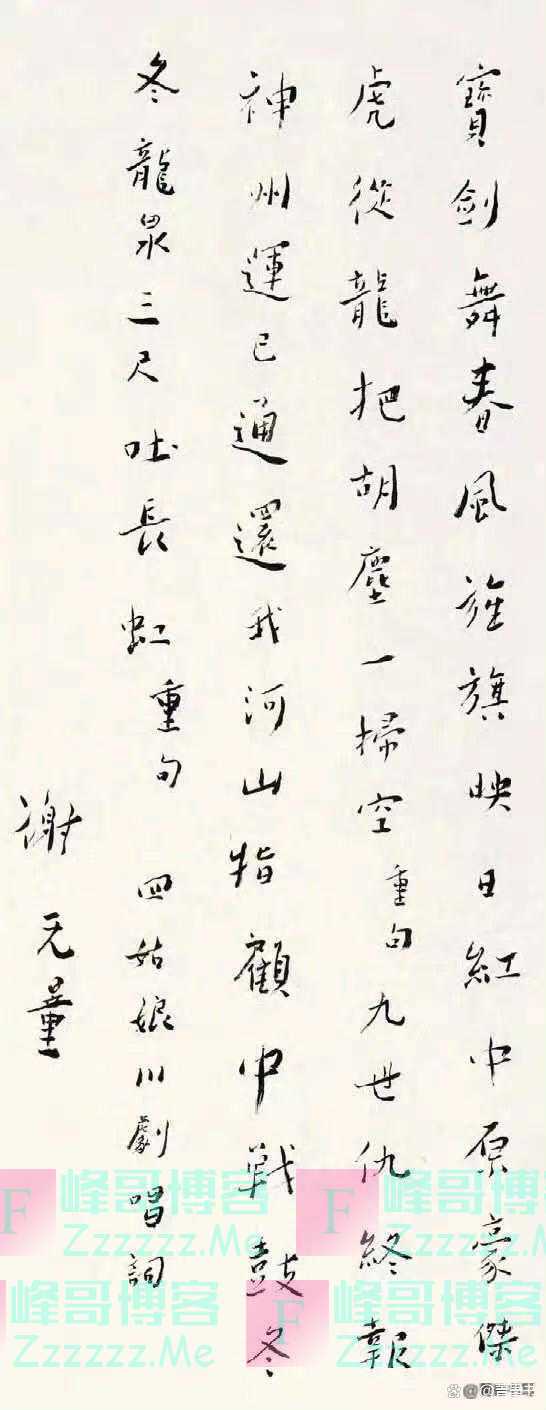 寶劍舞春風旌旗映日紅中原豪傑
虎從龍把胡塵一掃空重句九世仇終報
神州運已通還我河山指顧中戰鼓冬
冬龍泉三尺吐長虹重句 四姑娘川劇唱詞
謝无量
F 峰哥博客
Zzzzzz.Me
F 峰哥博客
Zzzzzz.Me
F 峰哥博客
Zzzzzz.Me
F 峰哥博客
Zzzzzz.Me